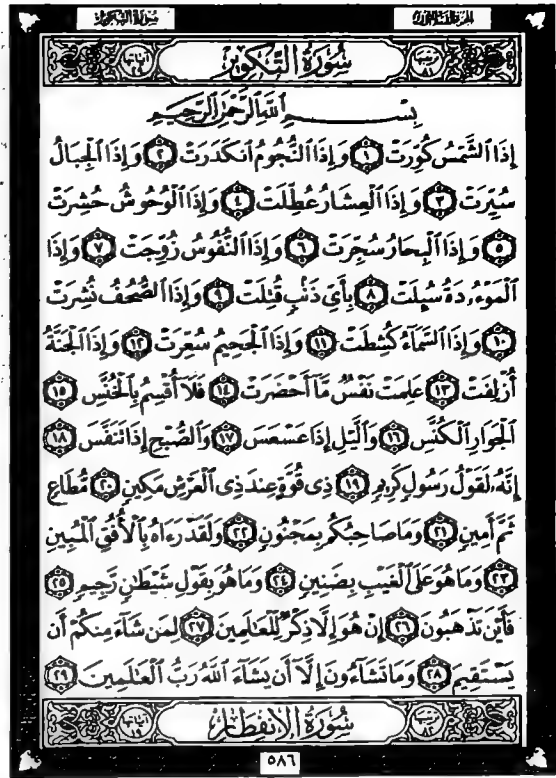 سُورَةُ التَّكْوِيرِ
الجزء الثلاثون
سُورَةُ التَّكْوِيرِ
ترتيبها ٨١
آياتها ٢٩
بِسْمِ اللَّهِ الرَّحْمَٰنِ الرَّحِيمِ
إِذَا الشَّمْسُ كُوِّرَتْ ١ وَإِذَا النُّجُومُ انكَدَرَتْ ٢ وَإِذَا الْجِبَالُ
سُيِّرَتْ ٣ وَإِذَا الْعِشَارُ عُطِّلَتْ ٤ وَإِذَا الْوُحُوشُ حُشِرَتْ
٥ وَإِذَا الْبِحَارُ سُجِّرَتْ ٦ وَإِذَا النُّفُوسُ زُوِّجَتْ ٧ وَإِذَا
الْمَوْءُۥدَةُ سُئِلَتْ ٨ بِأَيِّ ذَنۢبٍ قُتِلَتْ ٩ وَإِذَا الصُّحُفُ نُشِرَتْ
١٠ وَإِذَا السَّمَاءُ كُشِطَتْ ١١ وَإِذَا الْجَحِيمُ سُعِّرَتْ ١٢ وَإِذَا الْجَنَّةُ
أُزْلِفَتْ ١٣ عَلِمَتْ نَفْسٌ مَّا أَحْضَرَتْ ١٤ فَلَا أُقْسِمُ بِالْخُنَّسِ ١٥
الْجَوَارِ الْكُنَّسِ ١٦ وَالَّيْلِ إِذَا عَسْعَسَ ١٧ وَالصُّبْحِ إِذَا تَنَفَّسَ ١٨
إِنَّهُۥ لَقَوْلُ رَسُولٍ كَرِيمٍ ١٩ ذِى قُوَّةٍ عِندَ ذِى الْعَرْشِ مَكِينٍ ٢٠ مُّطَاعٍ
ثَمَّ أَمِينٍ ٢١ وَمَا صَاحِبُكُم بِمَجْنُونٍ ٢٢ وَلَقَدْ رَءَاهُ بِالْأُفُقِ الْمُبِينِ
٢٣ وَمَا هُوَ عَلَى الْغَيْبِ بِضَنِينٍ ٢٤ وَمَا هُوَ بِقَوْلِ شَيْطَٰنٍ رَّجِيمٍ ٢٥
فَأَيْنَ تَذْهَبُونَ ٢٦ إِنْ هُوَ إِلَّا ذِكْرٌ لِّلْعَٰلَمِينَ ٢٧ لِمَن شَاءَ مِنكُمْ أَن
يَسْتَقِيمَ ٢٨ وَمَا تَشَاءُونَ إِلَّا أَن يَشَاءَ اللَّهُ رَبُّ الْعَٰلَمِينَ ٢٩
سُورَةُ الِانْفِطَارِ
ترتيبها ٨٢
آياتها ١٩
٥٨٦